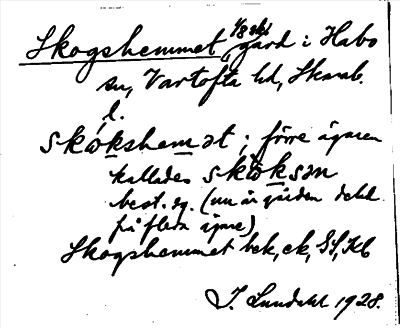 Skogshemmet, 1/8 skt gård i Habo
sn, Vartofta hd, Skarab.
l.
skωkshemət; förre ägaren
kallades skωksən
best. sg. (nu är gården delad
på flera ägare)
Skogshemmet bek, ek, GS, Kb
J. Lundahl 1928.